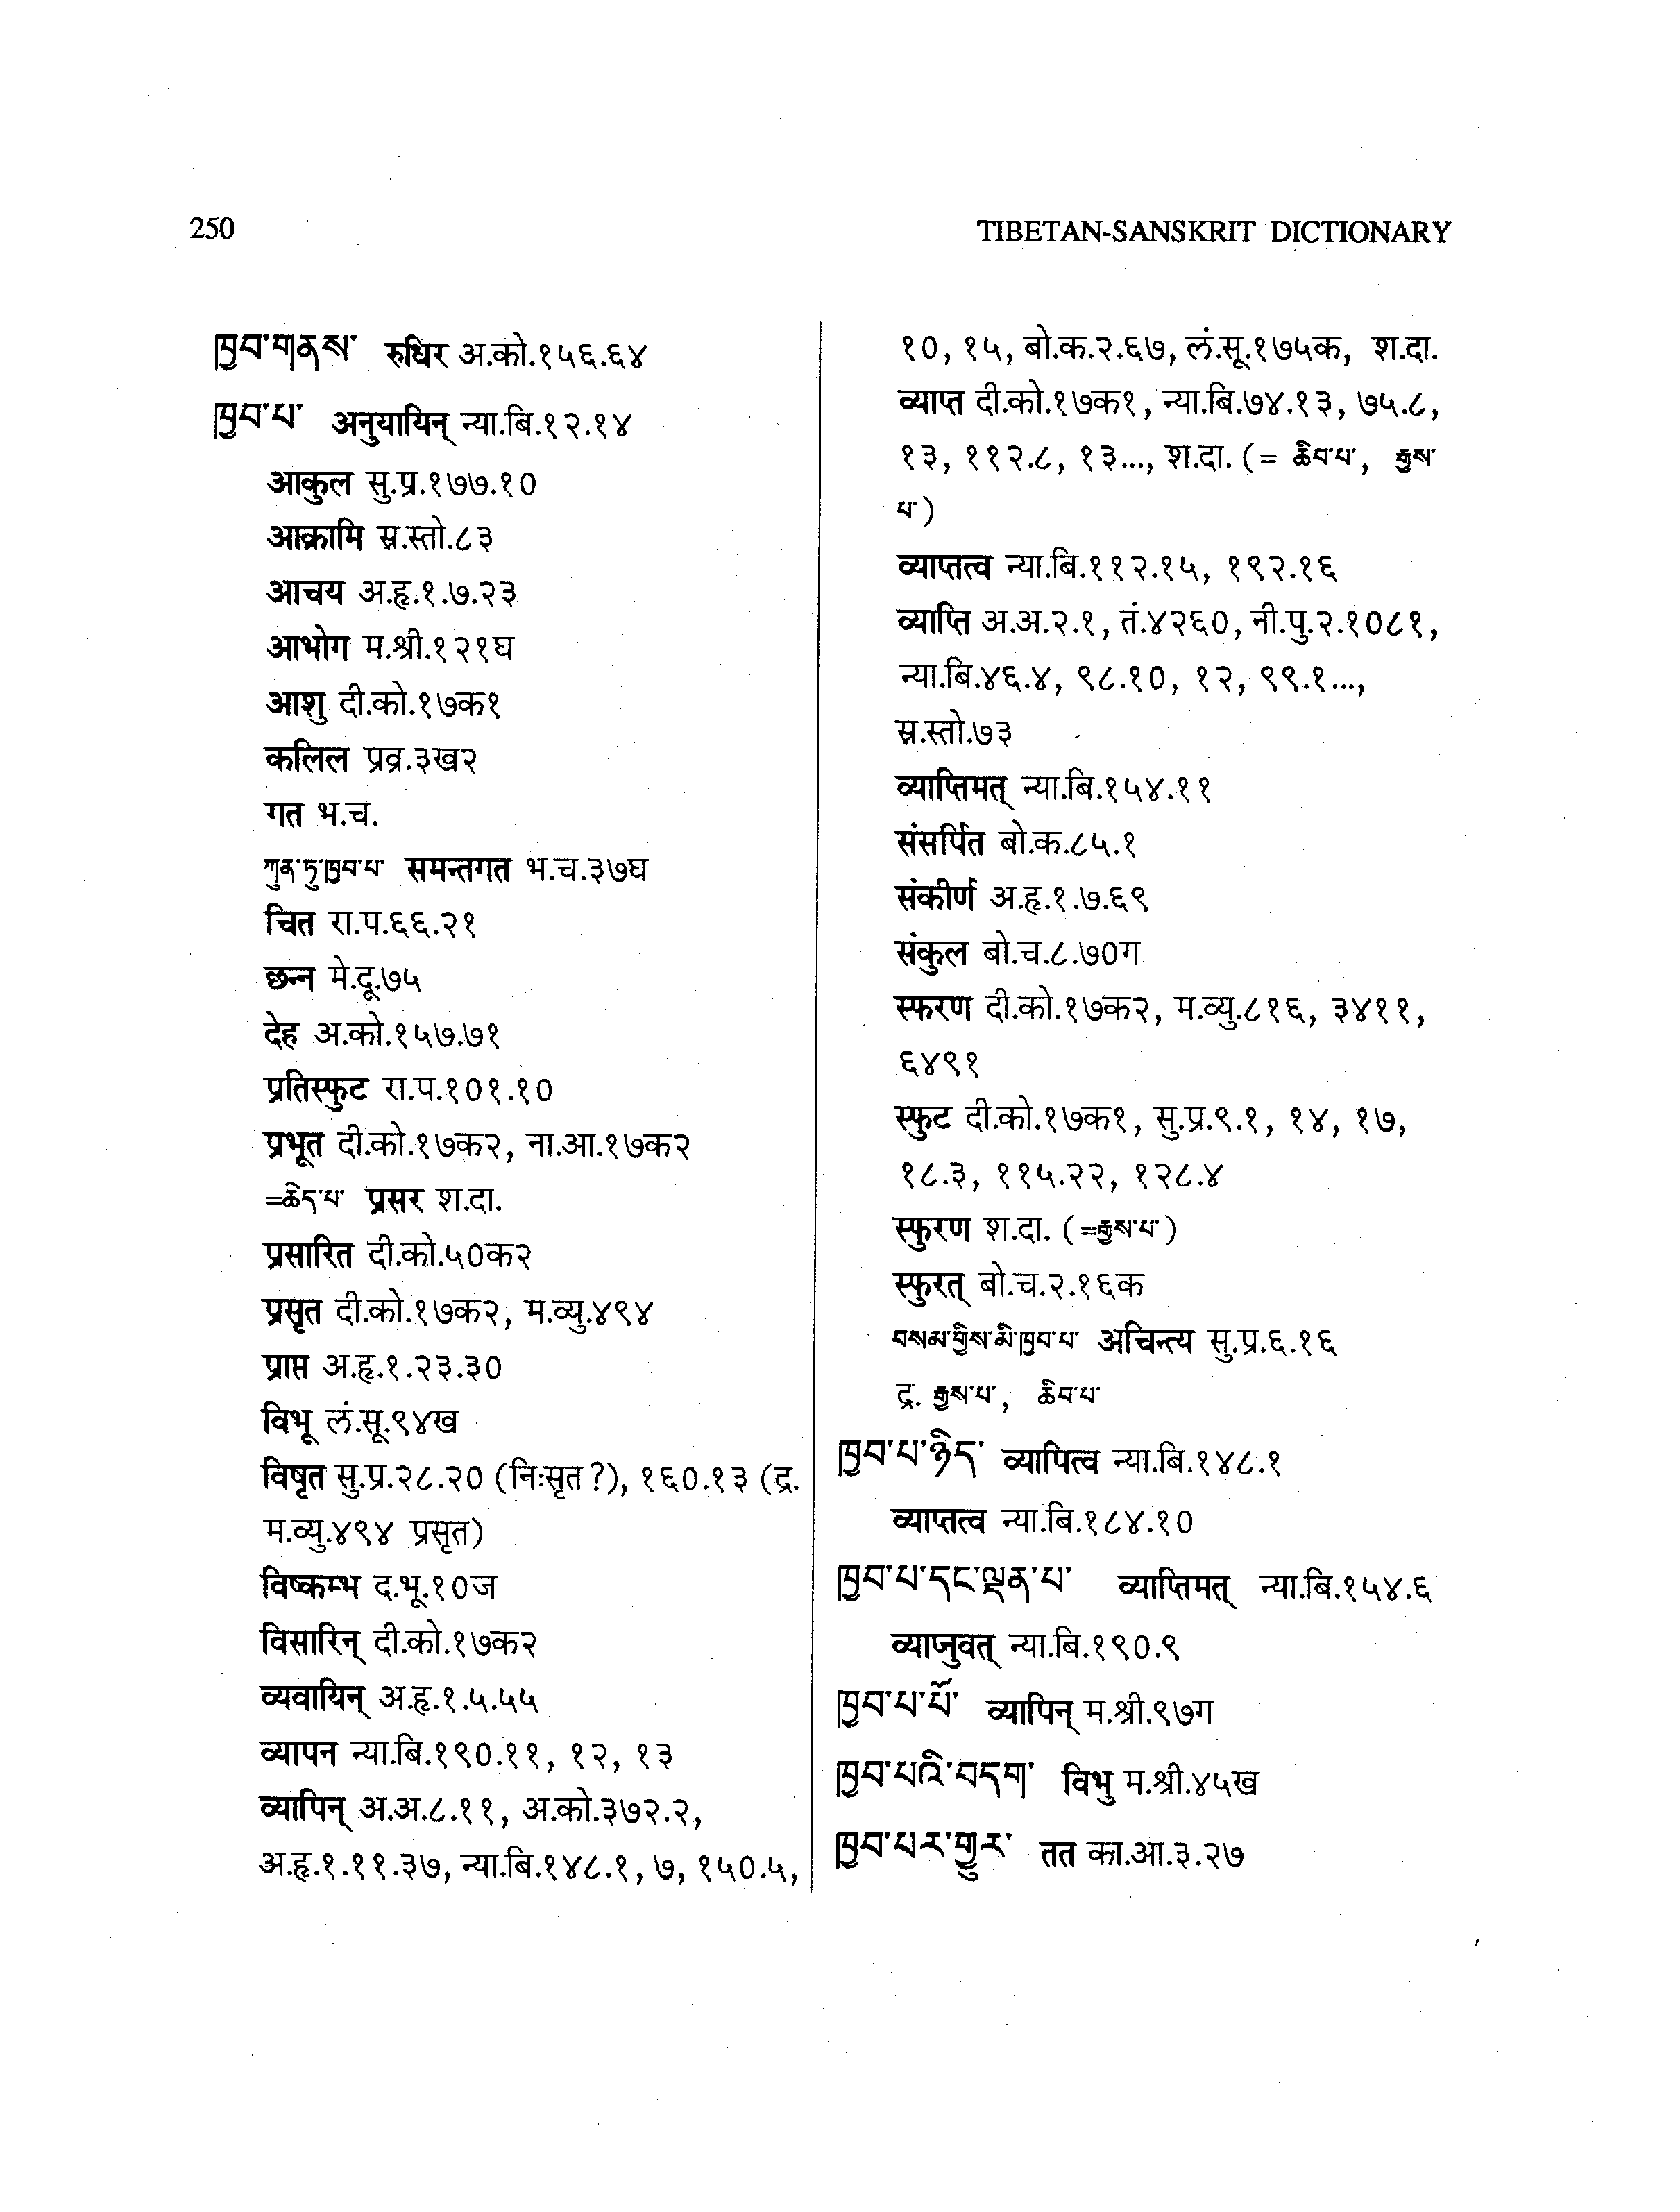 250
TIBETAN-SANSKRIT DICTIONARY
ཁྱབ་གནས་ रुधिर अ.को.१५६.६४
ཁྱབ་པ་ अनुयायिन् न्या.बि.१२.१४
आकुल सु.प्र.१७७.१०
आक्रामि स्र.स्तो.८३
आचय अ.हृ.१.७.२३
आभोग म.श्री.१२१घ
आशु दी.को.१७क१
कलिल प्रव्र.३ख२
गत भ.च.
ཀུན་ཏུ་ཁྱབ་པ་ समन्तगत भ.च.३७घ
चित रा.प.६६.२१
छन्न मे.दू.७५
देह अ.को.१५७.७१
प्रतिस्फुट रा.प.१०१.१०
प्रभूत दी.को.१७क२, ना.आ.१७क२
=ཆེད་པ་ प्रसर श.दा.
प्रसारित दी.को.५०क२
प्रसृत दी.को.१७क२, म.व्यु.४९४
प्राप्त अ.हृ.१.२३.३०
विभू लं.सू.९४ख
विषृत सु.प्र.२८.२० (निःसृत?), १६०.१३ (द्र.
म.व्यु.४९४ प्रसृत)
विष्कम्भ द.भू.१०ज
विसारिन् दी.को.१७क२
व्यवायिन् अ.हृ.१.५.५५
व्यापन न्या.बि.१९०.११, १२, १३
व्यापिन् अ.अ.८.११, अ.को.३७२.२,
अ.हृ.१.११.३७, न्या.बि.१४८.१, ७, १५०.५,
१०, १५, बो.क.२.६७, लं.सू.१७५क, श.दा.
व्याप्त दी.को.१७क१, न्या.बि.७४.१३, ७५.८,
१३, ११२.८, १३..., श.दा. (= ཆེབ་པ་, རྒྱས་
པ་)
व्याप्तत्व न्या.बि.११२.१५, १९२.१६
व्याप्ति अ.अ.२.१, तं.४२६०, नी.पु.२.१०८१,
न्या.बि.४६.४, ९८.१०, १२, ९९.१...,
स्र.स्तो.७३
व्याप्तिमत् न्या.बि.१५४.११
संसर्पित बो.क.८५.१
संकीर्ण अ.हृ.१.७.६९
संकुल बो.च.८.७०ग
स्फरण दी.को.१७क२, म.व्यु.८१६, ३४११,
६४९१
स्फुट दी.को.१७क१, सु.प्र.९.१, १४, १७,
१८.३, ११५.२२, १२८.४
स्फुरण श.दा. (=རྒྱས་པ་)
स्फुरत् बो.च.२.१६क
བསམ་གྱིས་མི་ཁྱབ་པ་ अचिन्त्य सु.प्र.६.१६
द्र. རྒྱས་པ་, ཆེབ་པ་
ཁྱབ་པ་ཉིད་ व्यापित्व न्या.बि.१४८.१
व्याप्तत्व न्या.बि.१८४.१०
ཁྱབ་པ་དང་ལྡན་པ་ व्याप्तिमत् न्या.बि.१५४.६
व्याप्नुवत् न्या.बि.१९०.९
ཁྱབ་པ་པོ་ व्यापिन् म.श्री.९७ग
ཁྱབ་པའི་བདག་ विभु म.श्री.४५ख
ཁྱབ་པར་གྱུར་ तत का.आ.३.२७